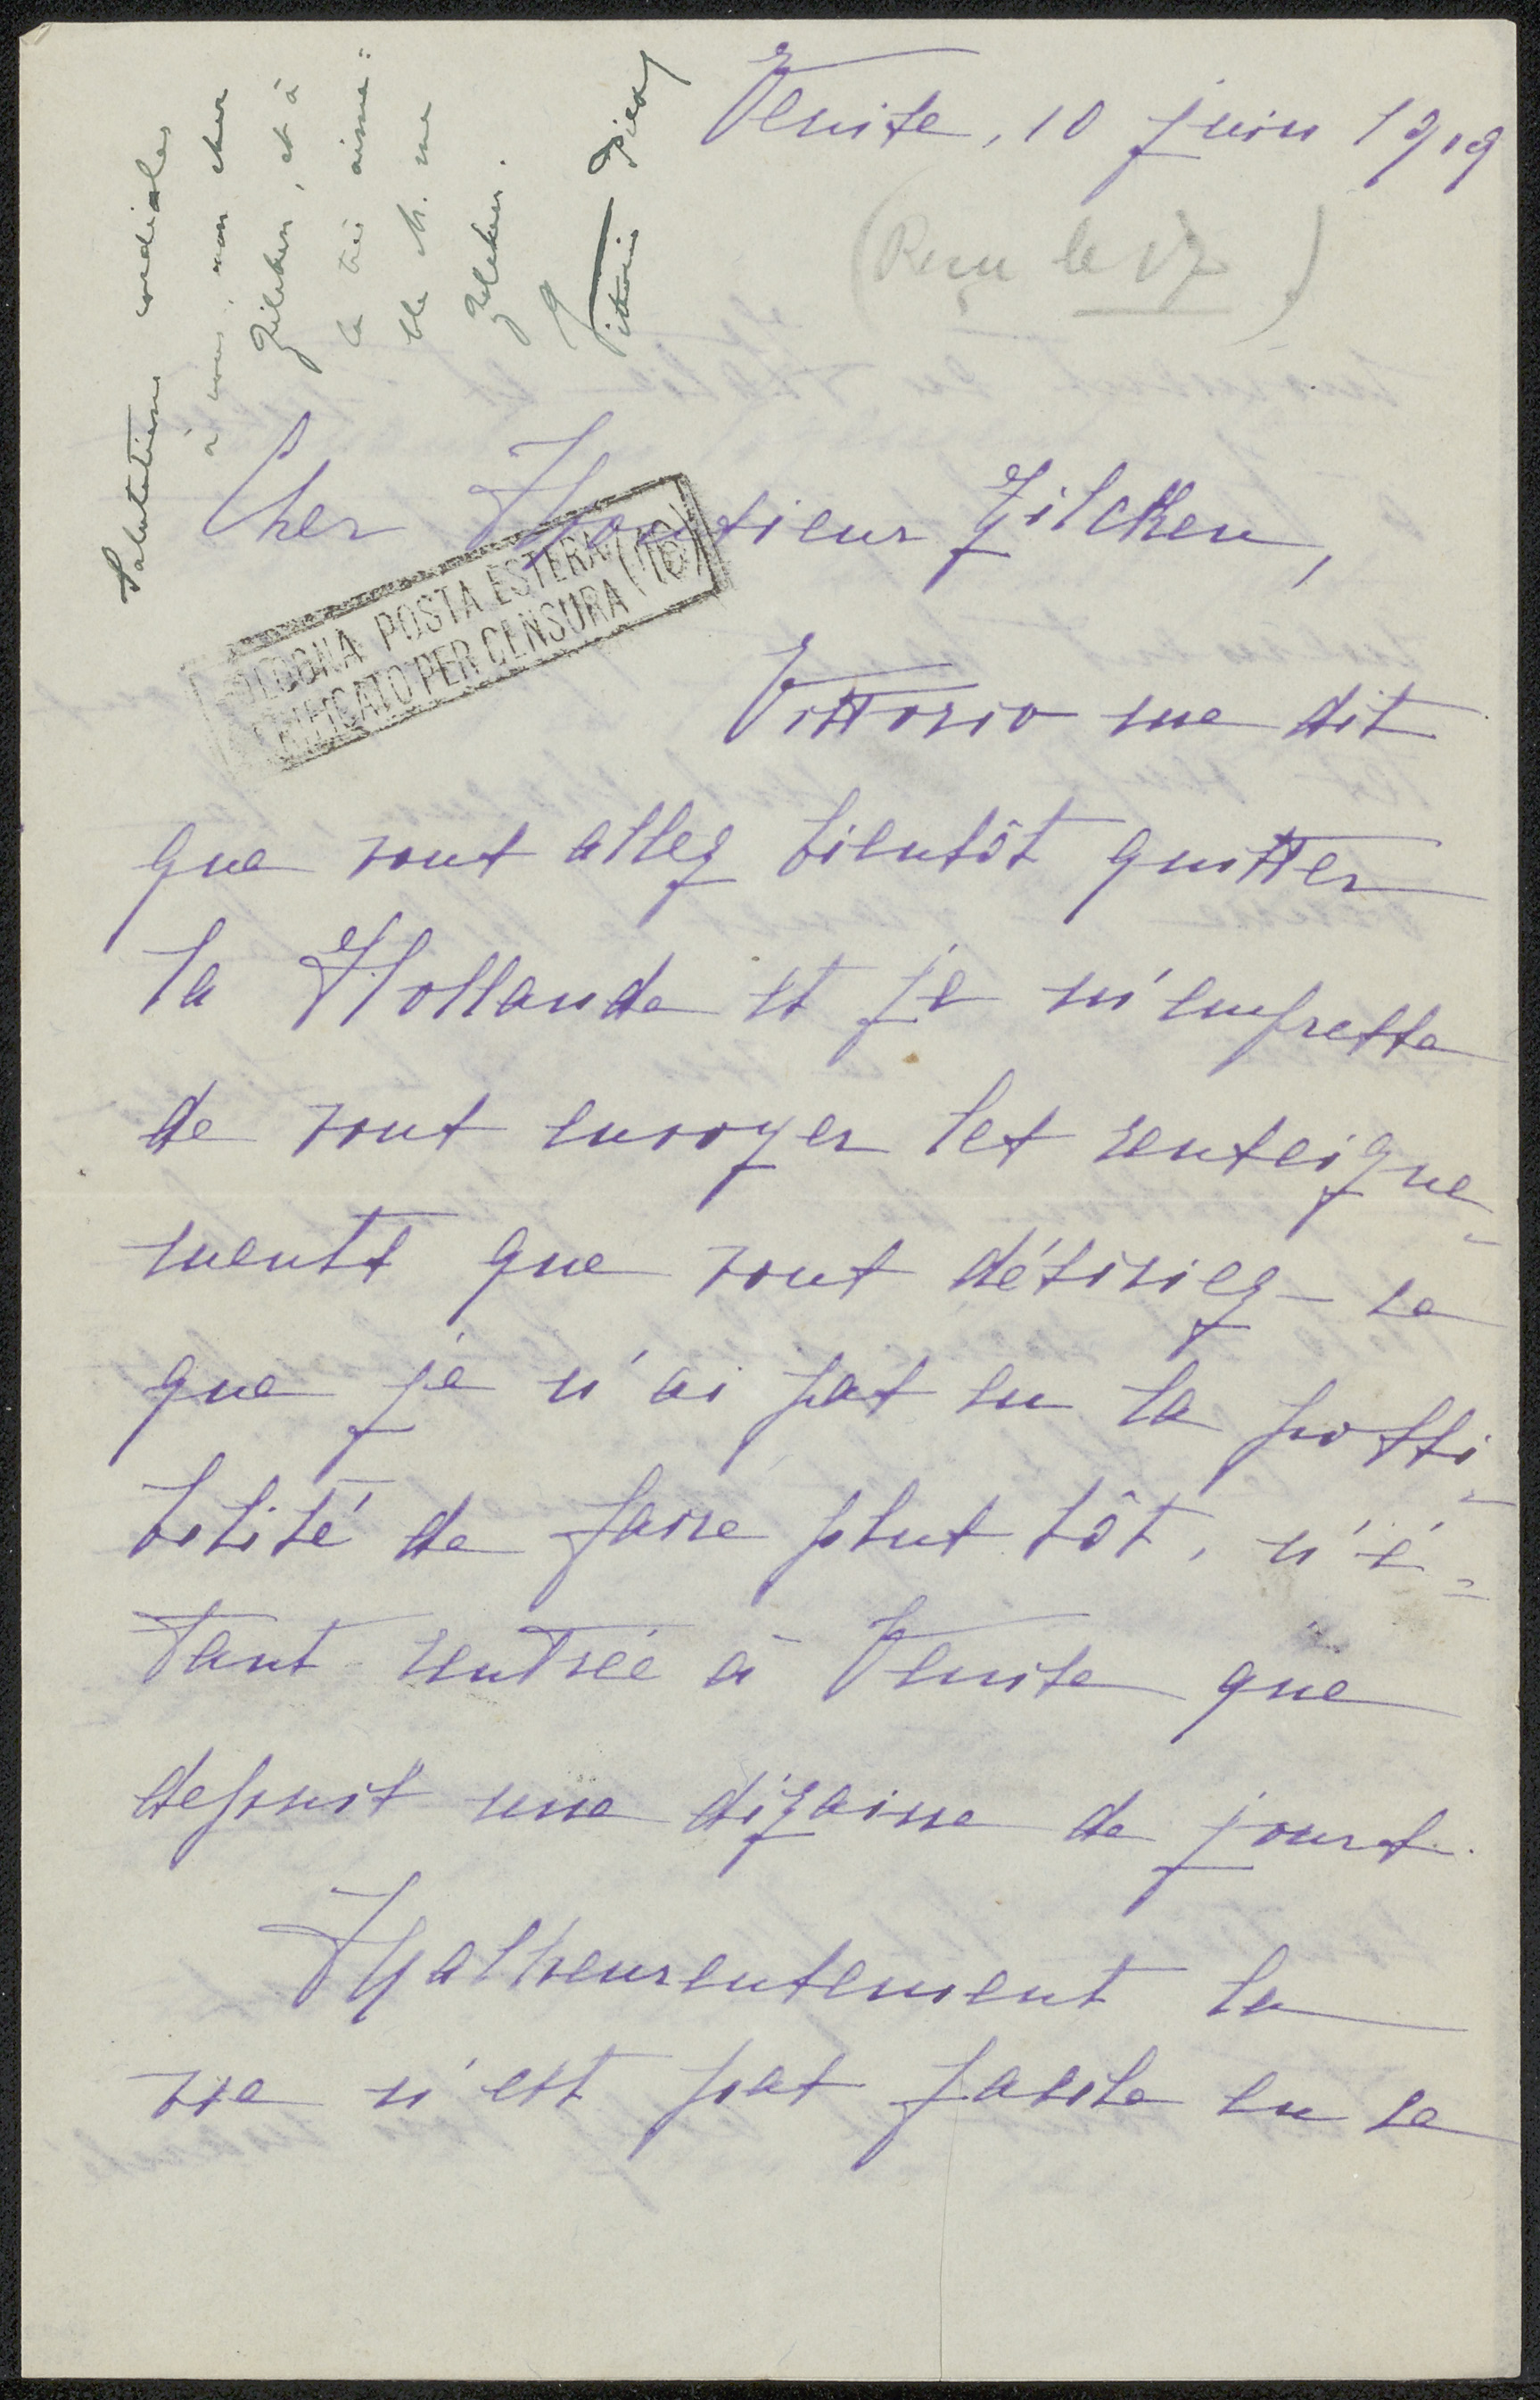 Venise, 10 juin 1919
(Reçu le 17)
Salutations cordiales
à vous, mon cher
Zilcken, et à
la très aima=
ble M.me
Zilcken.
Vittorio Pica
Cher Monsieur Zilcken,
BOLOGNA POSTA ESTERA (16)
VERIFICATO PER CENSURA
Vittorio me dit
que vous allez bientôt quitter
la Hollande et je m'empresse
de vous envoyer les renseigne-
ments que vous désiriez – ce
que je n'ai pas eu la possi-
bilité de faire plus tôt, n'é=
tant rentrée à Venise que
depuis une dizaine de jours.
Malheureusement la
vie n'est pas facile en ce